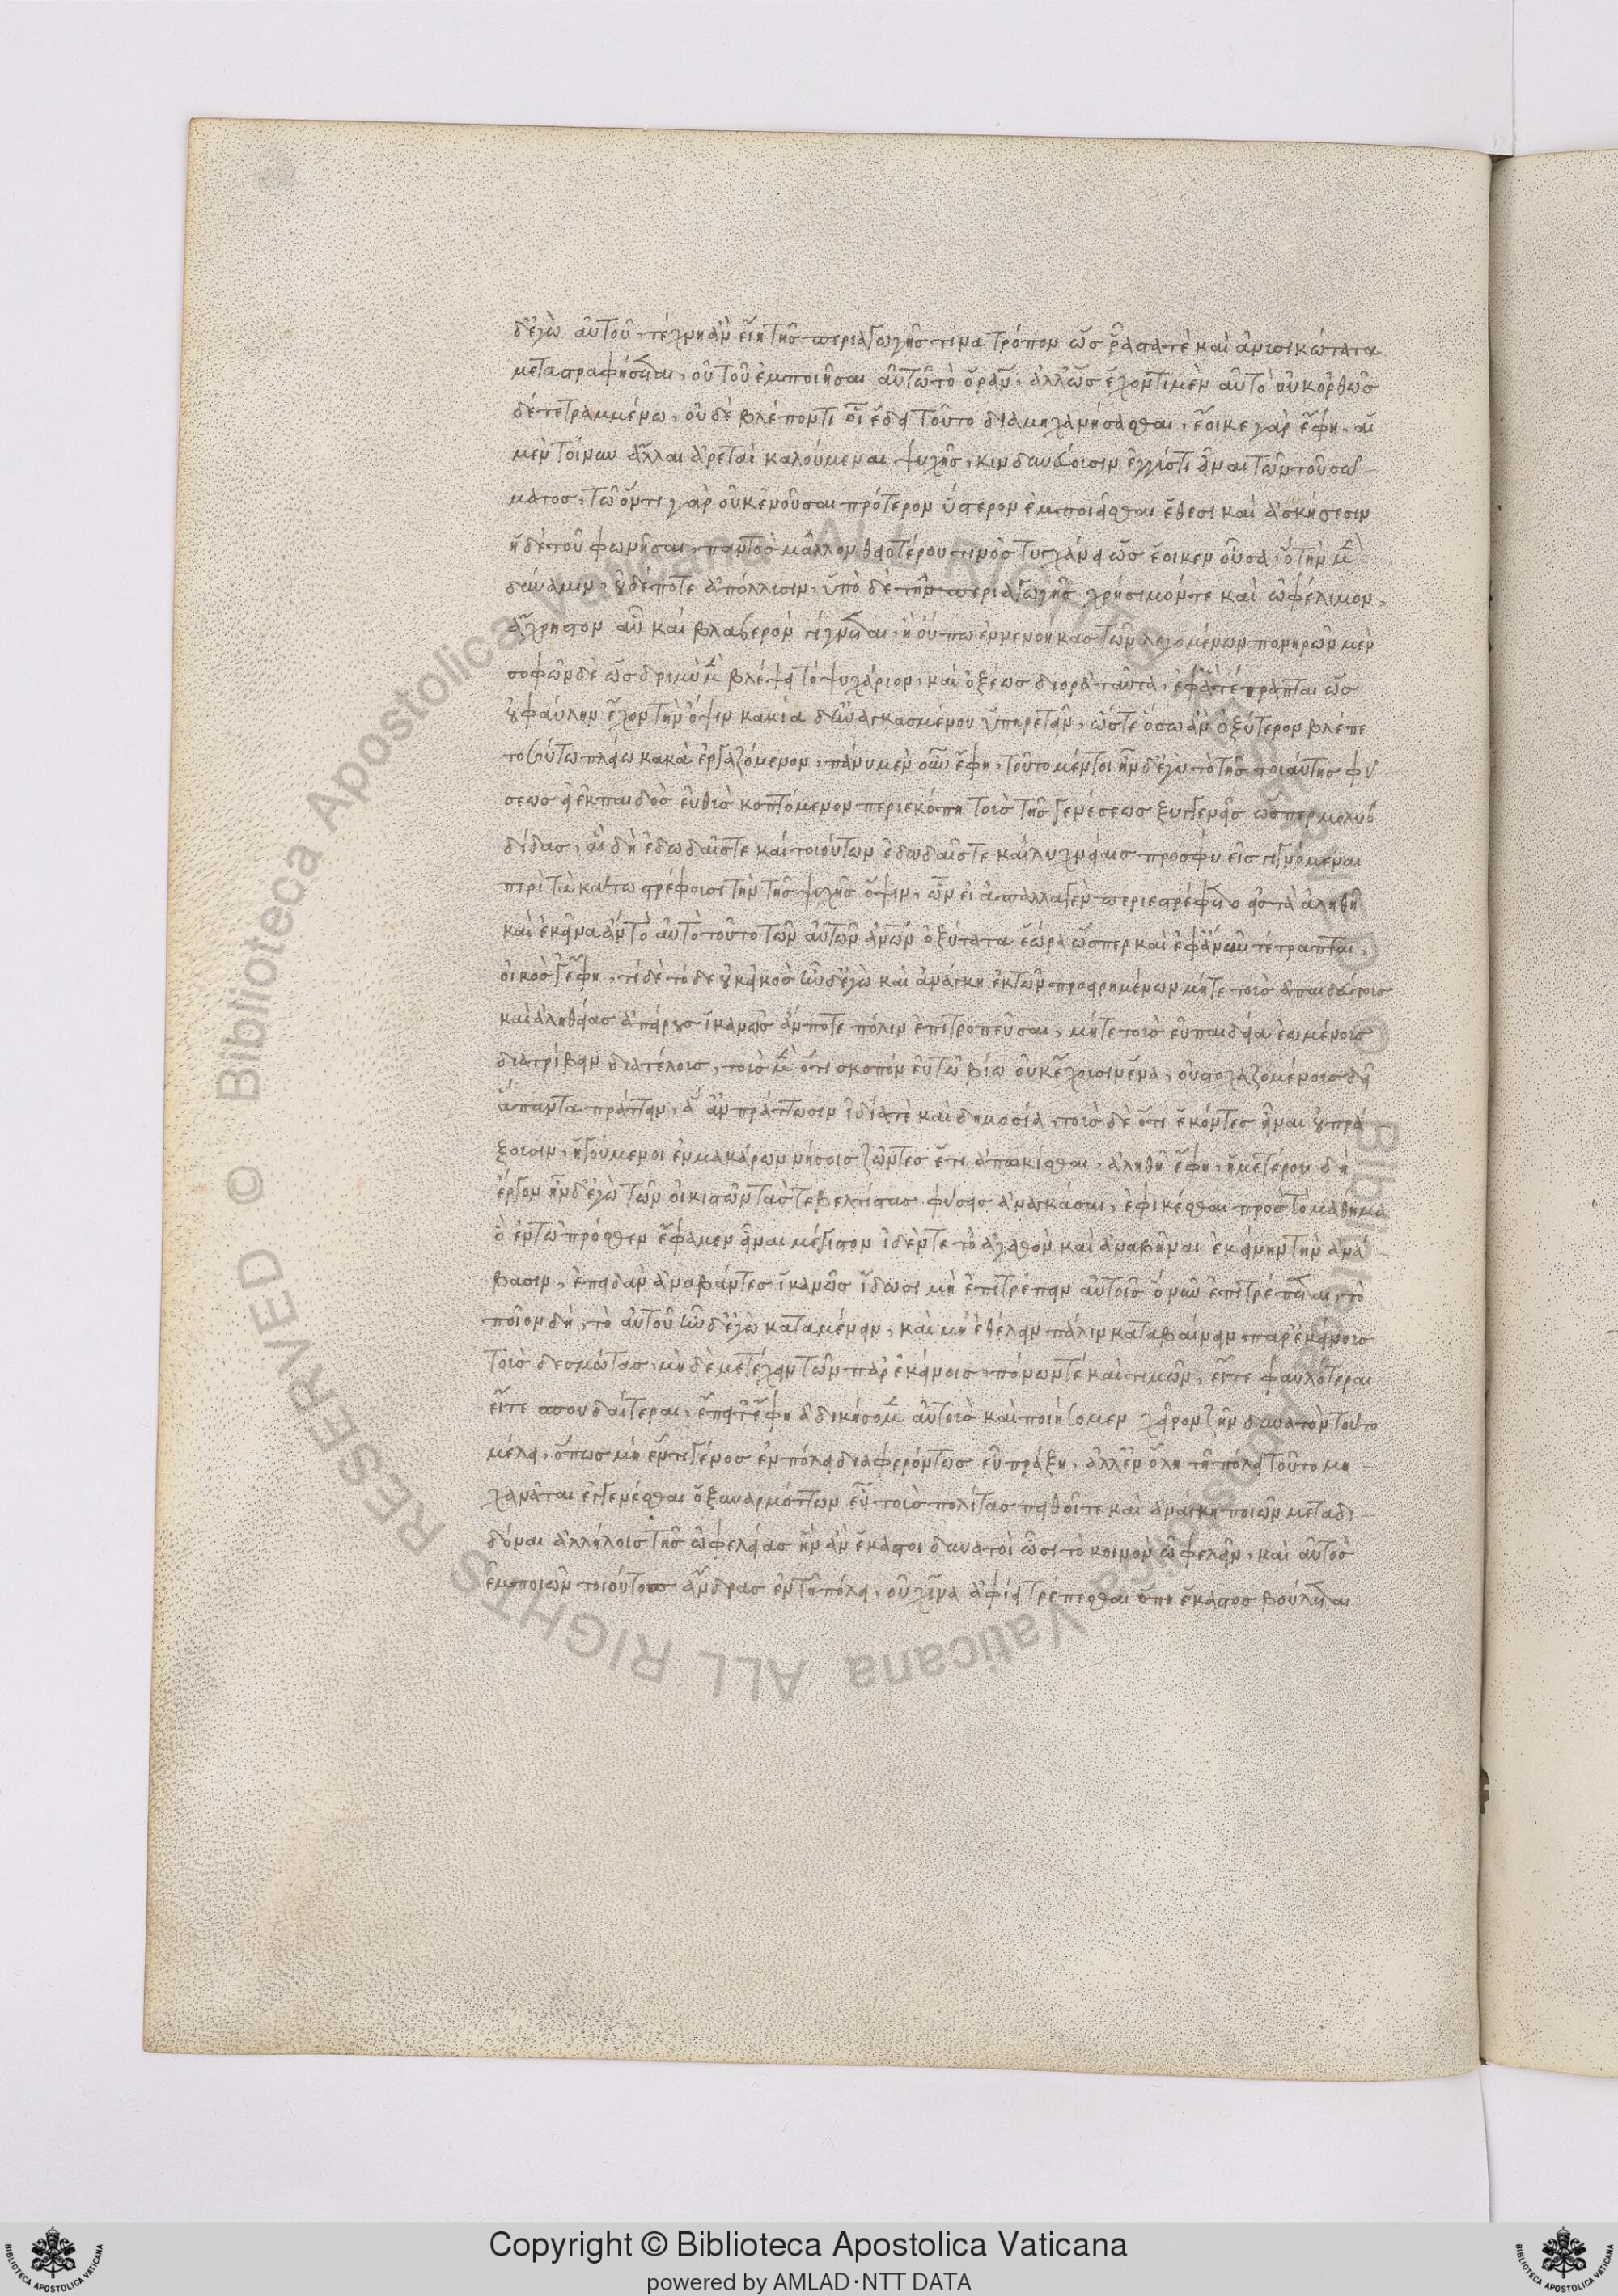 δ' ἐγὼ αὐτοῦ τέχνη ἂν εἴη τῆς περιαγωγῆς τίνα τρόπον ὡς ῥᾷστά τε καὶ ἀνυσικώτατα
μεταστραφήσεται, οὐ τοῦ ἐμποιῆσαι αὐτῶ τὸ ὁρᾶν, ἀλλ' ὡς ἔχοντι μὲν αὐτὸ οὐκ ὀρθῶς
δὲ τετραμμένω, οὐδὲ βλέποντι οἷ ἔδει τοῦτο διαμηχανήσασθαι, ἔοικε γὰρ ἔφη, αἱ
μὲν τοίνυν ἄλλαι ἀρεταὶ καλούμεναι ψυχῆς, κινδυνεύουσιν ἐγγύς τι εἶναι τῶν τοῦ σώ
ματος, τῶ ὄντι γὰρ οὐκ ἐνοῦσαι πρότερον ὕστερον ἐμποιεῖσθαι ἔθεσι καὶ ἀσκήσεσιν
ἡ δὲ τοῦ φωνῆσαι, παντὸς μᾶλλον θειοτέρου τινὸς τυγχάνει ὡς ἔοικεν οὖσα, ὃ τὴν μὲν
δύναμιν, οὐδέποτε ἀπόλλυσιν, ὑπὸ δὲ τῆς περιαγωγῆς χρήσιμόν τε καὶ ὠφέλιμον,
ἄχρηστον αὖ καὶ βλαβερὸν γίγνεται, ἢ οὔπω ἐννενόηκας τῶν λεγομένων πονηρῶν μὲν
σοφῶν δὲ ὡς δριμὺ μὲν βλέπει τὸ ψυχάριον, καὶ ὀξέως διορᾶ ταῦτα, ἐφ' ἃ τέτραπται ὡς
οὐ φαύλην ἔχον τὴν ὄψιν κακία δ' ἠναγκασμένον ὑπηρετεῖν, ὥστε ὅσω ἂν ὀξύτερον βλέπη
τοσούτω πλείω κακὰ ἐργαζόμενον, πάνυ μὲν οὖν ἔφη, τοῦτο μέντοι ἦν δ' ἐγὼ τὸ τῆς τοιαύτης φύ
σεως εἰ ἐκ παιδὸς εὐθὺς κοπτόμενον περιεκόπη τοὺς τῆς γενέσεως ξυγγενεῖς ὥσπερ μολυβ
δίδας, αἳ δὴ ἐδωδαῖς τε καὶ τοιούτων ἐδωδαῖς τε καὶ λιχνείαις προσφυεῖς γιγνόμεναι
περὶ τὰ κάτω στρέφουσι τὴν τῆς ψυχῆς ὄψιν, ὧν εἰ ἀπαλλαγὲν περιεστρέφετο εἰς τὰ ἀληθῆ
καὶ ἐκεῖνα ἂν τὸ αὐτὸ τοῦτο τῶν αὐτῶν ἀνθρώπων ὀξύτατα ἑώρα ὥσπερ καὶ ἐφ' ἃ νῦν τέτραπται,
εἰκός γ' ἔφη, τί δὲ τόδε οὐκ εἰκὸς ἦν δ' ἐγὼ καὶ ἀνάγκη ἐκ τῶν προειρημένων μήτε τοὺς ἀπαιδεύτους
καὶ ἀληθείας ἀπείρους ἱκανῶς ἄν ποτε πόλιν ἐπιτροπεῦσαι, μήτε τοὺς ἐν παιδεία ἐωμένους
διατρίβειν διατέλους, τοὺς μὲν ὅτι σκοπὸν ἐν τῶ βίω οὐκ ἔχουσιν ἕνα, οὗ στοχαζομένους δεῖ
ἅπαντα πράττειν, ἃ ἂν πράττωσιν ἰδία τὲ καὶ δημοσία, τοὺς δὲ ὅτι ἑκόντες εἶναι οὐ πρά
ξουσιν, ἡγούμενοι ἐν μακάρων νήσοις ζῶντες ἔτι ἀπωκίσθαι, ἀληθῆ ἔφη, ἡμέτερον δὴ
ἔργον ἦν δ' ἐγὼ τῶν οἰκιστῶν τάς τε βελτίστας φύσεις ἀναγκάσαι, ἐφικέσθαι πρὸς τὸ μάθημα
ὃ ἐν τῶ πρόσθεν ἔφαμεν εἶναι μέγιστον ἰδεῖν τε τὸ ἀγαθὸν καὶ ἀναβῆναι ἐκείνην τὴν ἀνά
βασιν, ἐπειδὰν ἀναβάντες ἱκανῶς ἴδωσι μὴ ἐπιτρέπειν αὐτοῖς ὃ νῦν ἐπιτρέπεται, τὸ
ποῖον δή, τὸ αὐτοῦ ἦν δ' ἐγὼ καταμένειν, καὶ μὴ ἐθέλειν πάλιν καταβαίνειν παρ' ἐκείνους
τοὺς δεσμώτας, μηδὲ μετέχειν τῶν παρ' ἐκείνοις, πόνων τέ καὶ τιμῶν, εἴτε φαυλότεραι
εἴτε σπουδαιότεραι, ἔπειτ' ἔφη ἀδικήσομεν αὐτοὺς καὶ ποιήσομεν χεῖρον ζῆν δυνατὸν τοῦτο
μέλει, ὅπως μὴ ἕν τι γένος ἐν πόλει διαφερόντως εὖ πράξη, ἀλλ' ἐν ὅλη τῆ πόλει τοῦτο μη
χανᾶται ἐγγενέσθαι ὃ ξυναρμόττων εὖ τοὺς πολίτας πειθοῖ τε καὶ ἀνάγκη ποιῶν μεταδι
δόναι ἀλλήλοις τῆς ὠφελείας ἣν ἂν ἕκαστοι δυνατοὶ ὦσι τὸ κοινὸν ὠφελεῖν, καὶ αὐτὸς
ἐμποιῶν τοιούτους ἄνδρας ἐν τῆ πόλει, οὐχ ἵνα ἀφίει τρέπεσθαι ὅπη ἕκαστος βούλεται
Copyright © Biblioteca Apostolica Vaticana
powered by AMLAD·NTT DATA
© Biblioteca Apostolica Vaticana ALL RIGHTS RESERVED